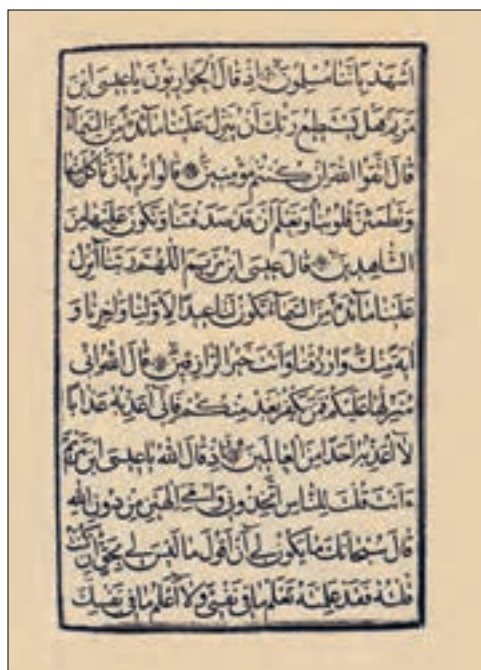 اشهد باننا مسلمون اذ قال الحواريون يا عيسى ابن
مريم هل يستطيع ربك ان ينزل علينا مائدة من السماء
قال اتقوا الله ان كنتم مؤمنين قالوا نريد ان ناكل منها
وتطمئن قلوبنا ونعلم ان قد صدقتنا ونكون عليها من
الشاهدين قال عيسى ابن مريم اللهم ربنا انزل
علينا مائدة من السماء تكون لنا عيدا لاولنا واخرنا و
اية منك وارزقنا وانت خير الرازقين قال الله اني
منزلها عليكم فمن يكفر بعد منكم فاني اعذبه عذابا
لا اعذبه احدا من العالمين واذ قال الله يا عيسى ابن مريم
ءانت قلت للناس اتخذوني وامي الهين من دون الله
قال سبحانك ما يكون لي ان اقول ما ليس لي بحق ان كنت
قلته فقد علمته تعلم ما في نفسي ولا اعلم ما في نفسك